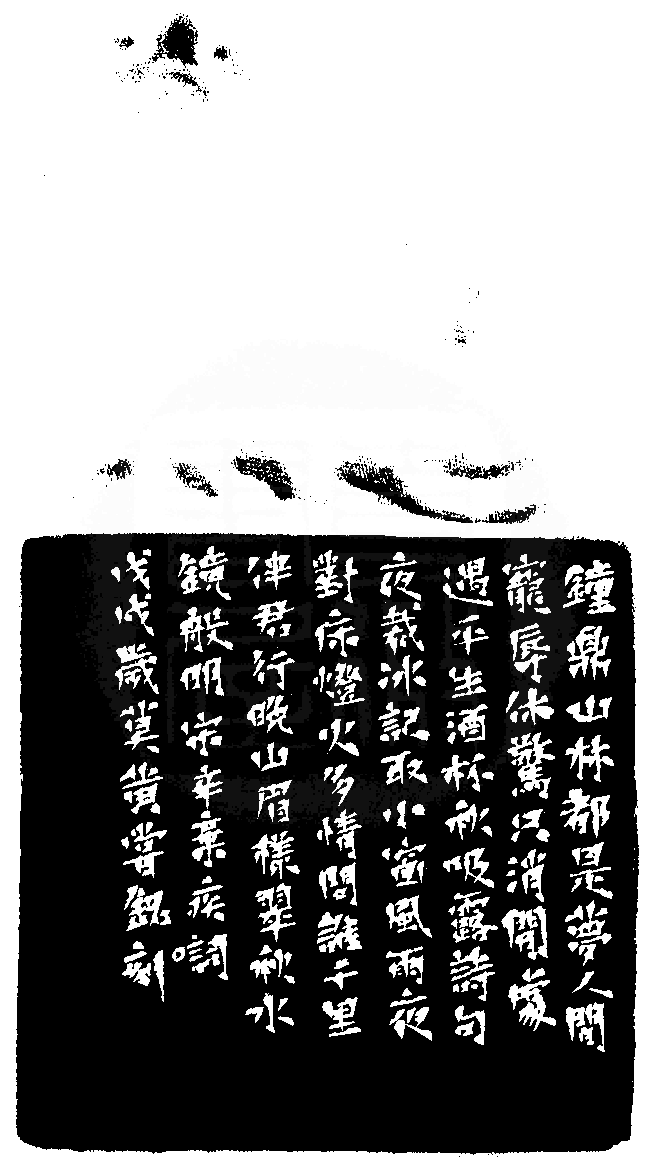 鐘鼎山林都是夢人間
寵辱休驚只消閒處
遇平生酒杯秋吸露詩句
夜裁冰記取小窗風雨夜
對床燈火多情問誰千里
伴君行晚山眉樣翠秋水
鏡般明宋辛棄疾詞。
戊戌歲莫黃嘗銘刻